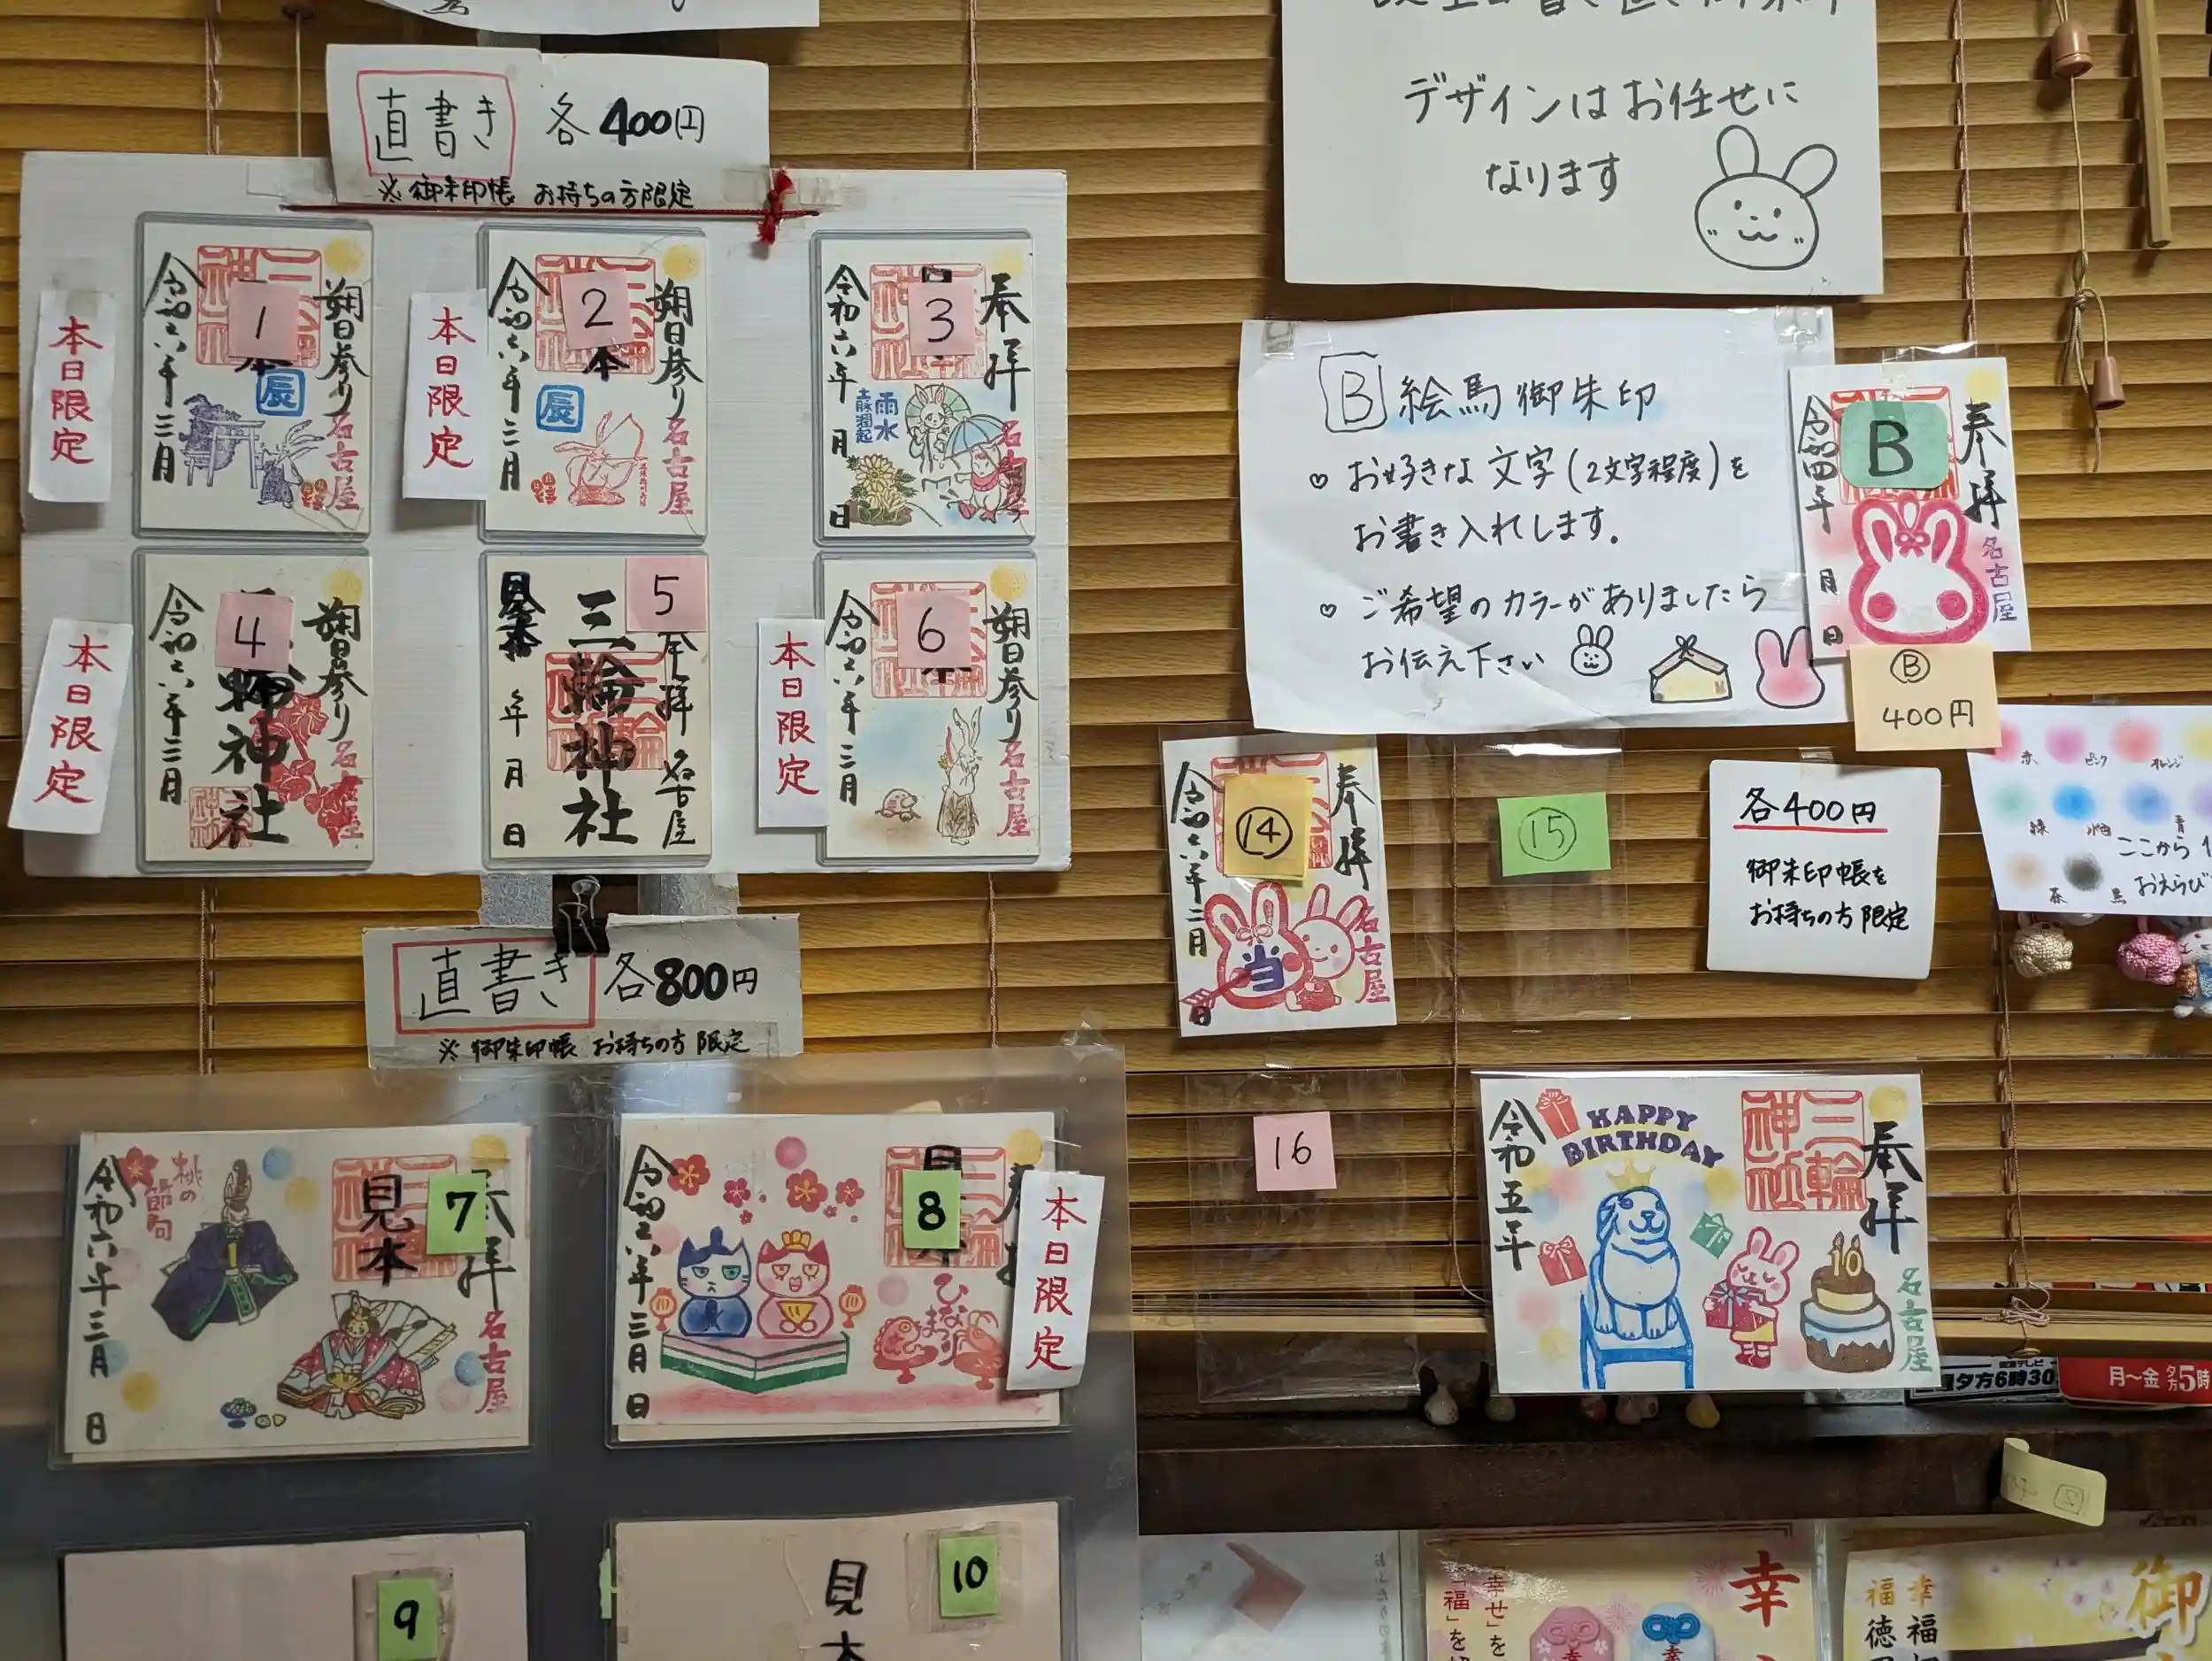 直書き 各400円
※御朱印帳 お持ちの方限定
本日限定
1
令和六年三月
朔日参り
辰
名古屋
本日限定
2
本
令和六年三月
朔日参り
辰
名古屋
3
令和六年 月 日
奉拝
雨水
名古屋
本日限定
4
令和六年三月
朔日参り
神社
名古屋
5
見本
年 月 日
三輪神社
奉拝
名古屋
本日限定
6
令和六年三月
朔日参り
名古屋
直書き 各800円
※御朱印帳 お持ちの方限定
7
見本
令和六年三月 日
桃の節句
奉拝
名古屋
8
令和六年三月 日
ひなまつり
本日限定
9
10
見本
デザインはお任せに
なります
B 絵馬御朱印
お好きな文字(2文字程度)を
お書き入れします。
ご希望のカラーがありましたら
お伝え下さい
B
令和四年 月 日
奉拝
名古屋
B
400円
14
令和六年二月 日
奉拝
当
名古屋
15
各400円
御朱印帳を
お持ちの方限定
赤 ピンク オレンジ
緑 水色 青
茶 黒
ここから
おえらび
16
令和五年
HAPPY
BIRTHDAY
三輪神社
奉拝
10
名古屋
夕方6時30
月〜金 夕方5時
幸
「幸せ」を
「福」を
御
幸福
福徳